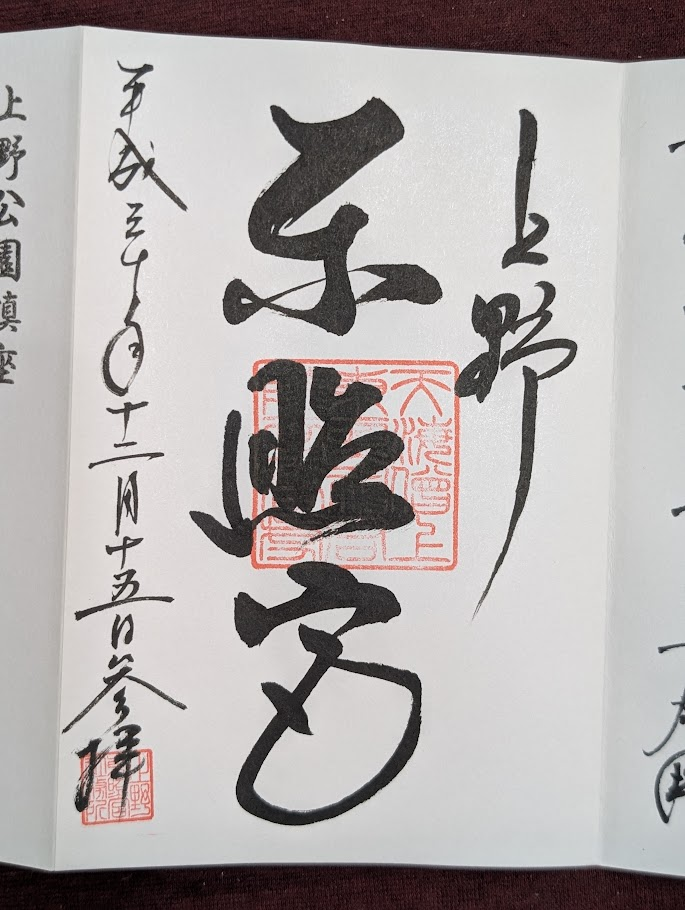 上野
東照宮
平成三十年十二月十五日参拝
上野公園鎮座